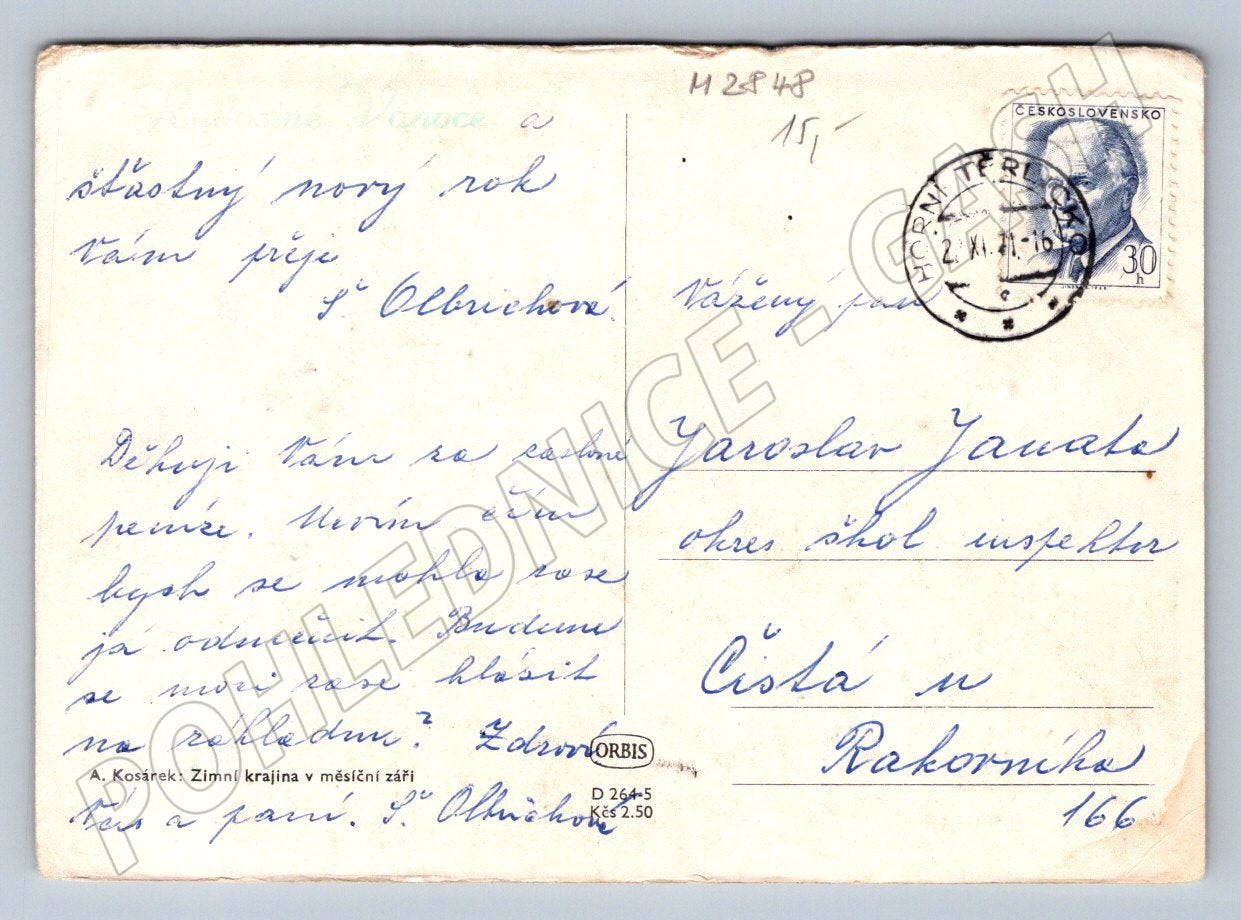 M 2848
15,-
Radostné Vánoce a
šťastný nový rok
Vám přeje
Š. Olbrichová.
Děkuji Vám za zaslané
peníze. Nevím čím
bych se mohla zase
já odměnit. Budeme
se moci zase hlásit
na základnu? Zdraví
Vás a paní. Š. Olbrichová
A. Kosárek: Zimní krajina v měsíční záři
ORBIS
D 264-5
Kčs 2.50
ČESKOSLOVENSKO
30
h
HORNÍ TĚRLICKO
2. XI. 71.-16
c
Vážený pan
Jaroslav Janata
okres škol inspektor
Čistá u
Rakovníka
166
POHLEDNICE - GASH